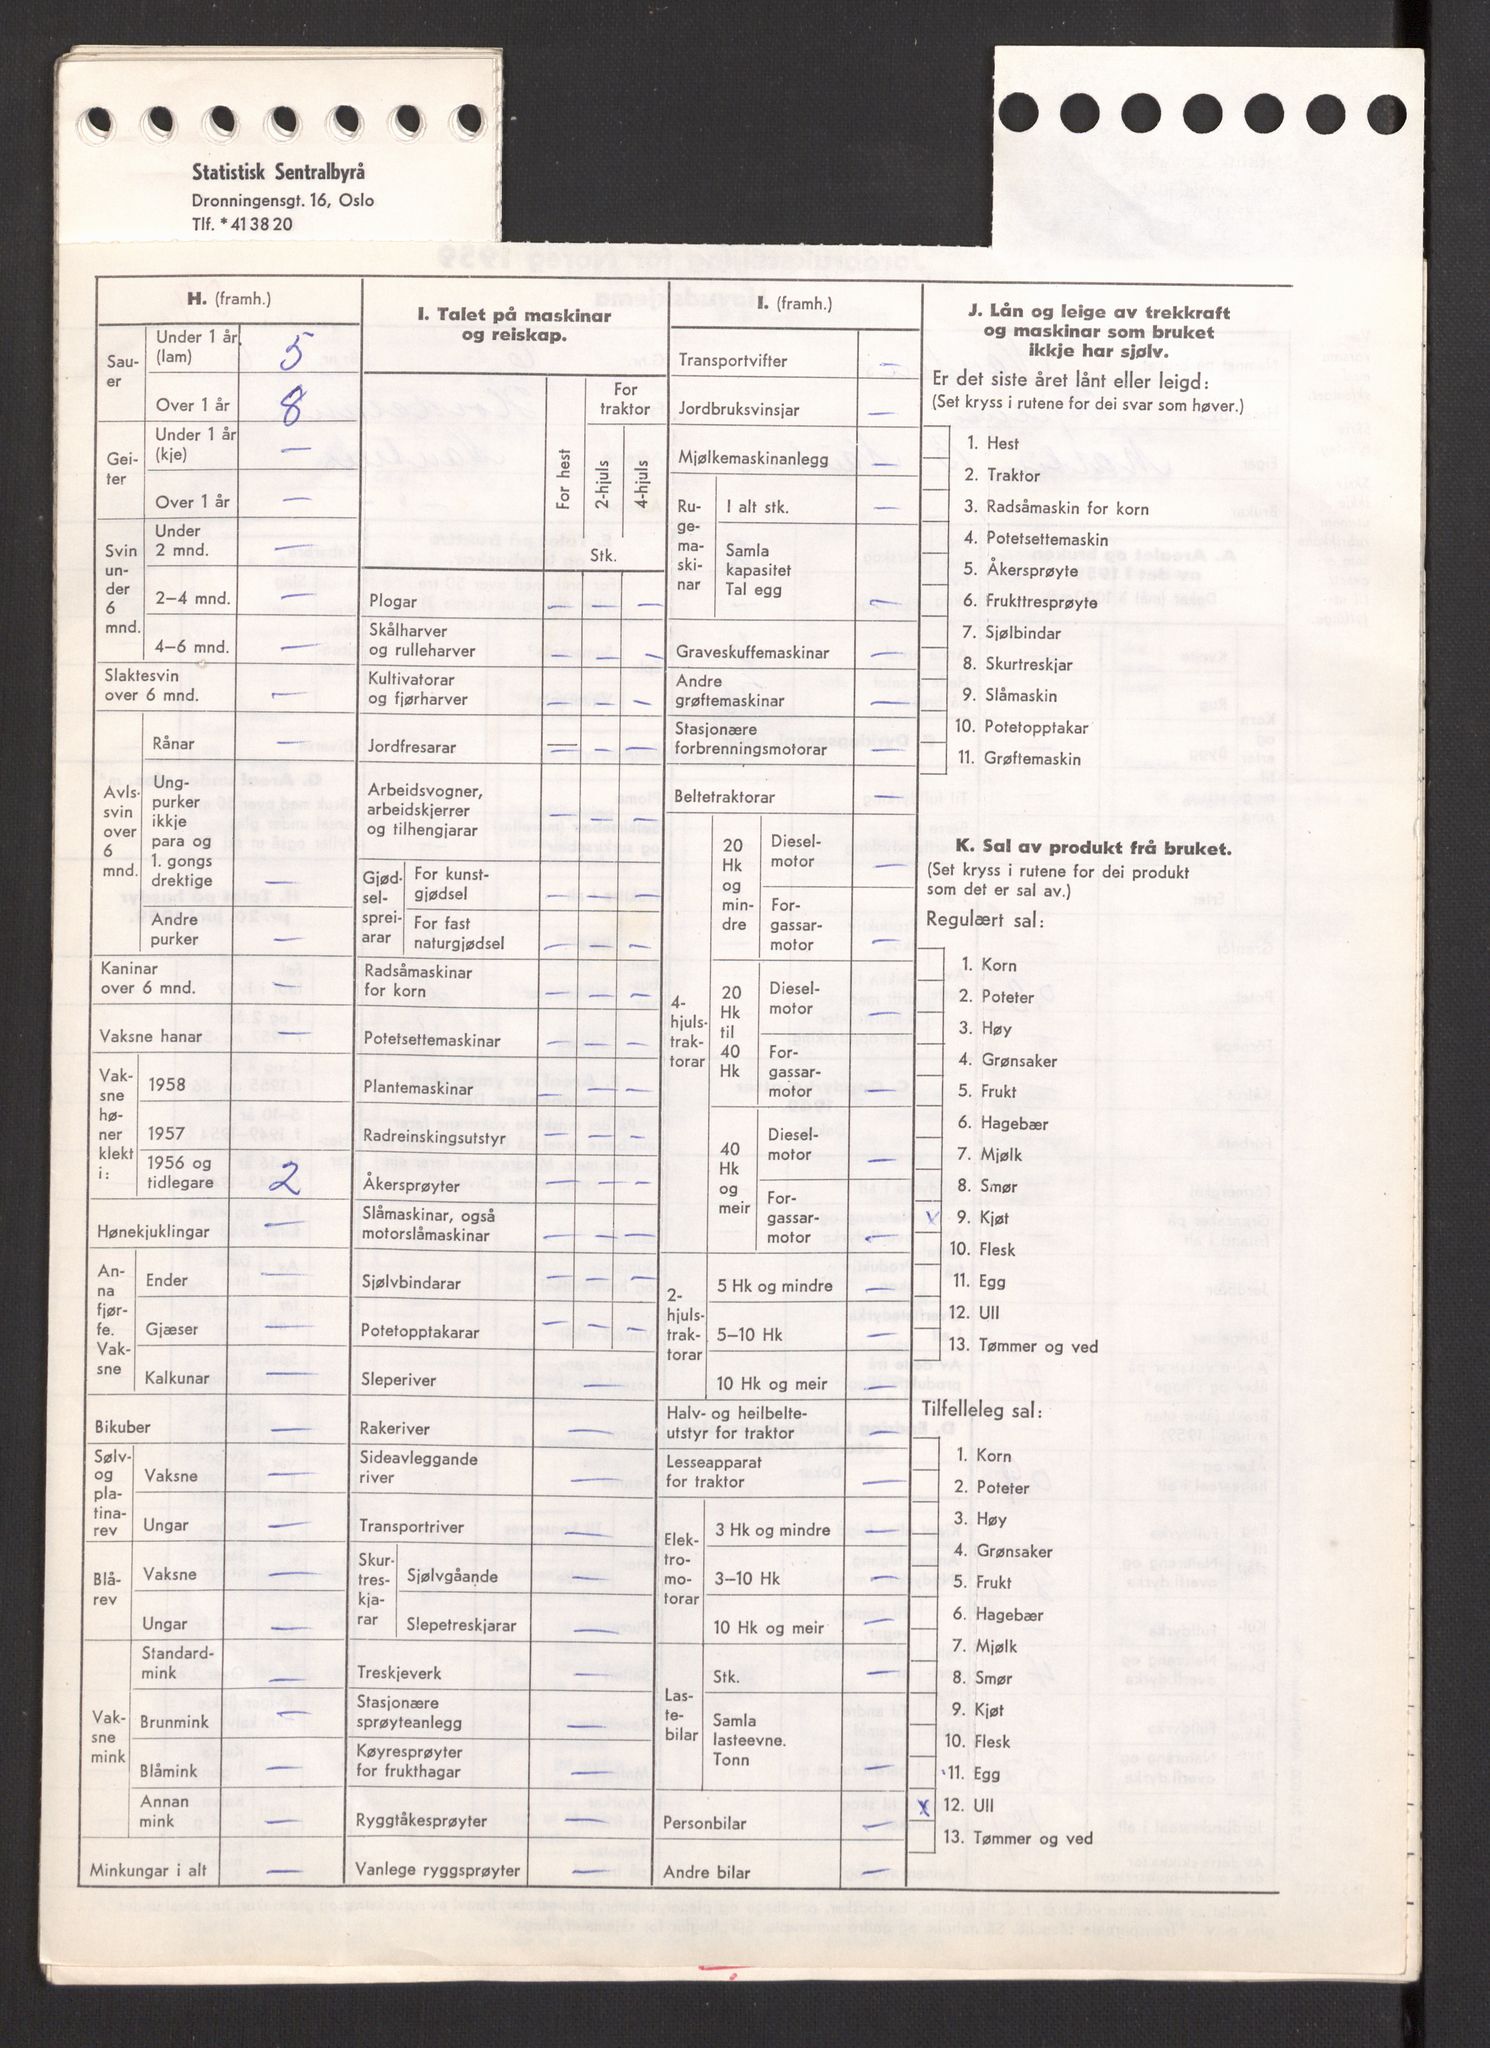 Statistisk Sentralbyrå
Dronningensgt. 16, Oslo
Tlf. * 41 38 20
H. (framh.)
Sau-
er
Under 1 år
(lam) 5
Over 1 år 8
Gei-
ter
Under 1 år
(kje) —
Over 1 år —
Svin
un-
der
6
mnd.
Under
2 mnd. —
2–4 mnd. —
4–6 mnd. —
Slaktesvin
over 6 mnd. —
Avls-
svin
over
6
mnd.
Rånar —
Ung-
purker
ikkje
para og
1. gongs
drektige —
Andre
purker —
Kaninar
over 6 mnd. —
Vaksne hanar —
Vak-
sne
høn-
er
klekt
i:
1958
1957
1956 og
tidlegare 2
Hønekjuklingar —
An-
na
fjør-
fe.
Vak-
sne
Ender —
Gjæser —
Kalkunar —
Bikuber —
Sølv-
og
pla-
tina-
rev
Vaksne —
Ungar —
Blå-
rev
Vaksne —
Ungar —
Vak-
sne
mink
Standard-
mink —
Brunmink —
Blåmink —
Annan
mink —
Minkungar i alt —
I. Talet på maskinar
og reiskap.
For hest
For
traktor
2-hjuls
4-hjuls
Stk.
Plogar — — —
Skålharver
og rulleharver — — —
Kultivatorar
og fjørharver — — —
Jordfresarar — — —
Arbeidsvogner,
arbeidskjerrer
og tilhengjarar — — —
Gjød-
sel-
sprei-
arar
For kunst-
gjødsel — — —
For fast
naturgjødsel — — —
Radsåmaskinar
for korn — — —
Potetsettemaskinar — — —
Plantemaskinar — — —
Radreinskingsutstyr — — —
Åkersprøyter — — —
Slåmaskinar, også
motorslåmaskinar — — —
Sjølvbindarar — — —
Potetopptakarar — — —
Sleperiver —
Rakeriver —
Sideavleggande
river —
Transportriver —
Skur-
tres-
kja-
rar
Sjølvgåande —
Slepetreskjarar —
Treskjeverk —
Stasjonære
sprøyteanlegg —
Køyresprøyter
for frukthagar —
Ryggtåkesprøyter —
Vanlege ryggsprøyter —
I. (framh.)
Transportvifter —
Jordbruksvinsjar —
Mjølkemaskinanlegg —
Ru-
ge-
ma-
ski-
nar
I alt stk. —
Samla
kapasitet
Tal egg —
Graveskuffemaskinar —
Andre
grøftemaskinar —
Stasjonære
forbrenningsmotorar —
Beltetraktorar —
4-
hjuls-
trak-
torar
20
Hk
og
min-
dre
Diesel-
motor —
For-
gassar-
motor —
20
Hk
til
40
Hk
Diesel-
motor —
For-
gassar-
motor —
40
Hk
og
meir
Diesel-
motor —
For-
gassar-
motor —
2-
hjuls-
trak-
torar
5 Hk og mindre —
5–10 Hk —
10 Hk og meir —
Halv- og heilbelte-
utstyr for traktor —
Lesseapparat
for traktor —
Elek-
tro-
mo-
torar
3 Hk og mindre —
3–10 Hk —
10 Hk og meir —
Las-
te-
bilar
Stk. —
Samla
lasteevne.
Tonn —
Personbilar —
Andre bilar —
J. Lån og leige av trekkraft
og maskinar som bruket
ikkje har sjølv.
Er det siste året lånt eller leigd:
(Set kryss i rutene for dei svar som høver.)
1. Hest
2. Traktor
3. Radsåmaskin for korn
4. Potetsettemaskin
5. Åkersprøyte
6. Frukttresprøyte
7. Sjølbindar
8. Skurtreskjar
9. Slåmaskin
10. Potetopptakar
11. Grøftemaskin
K. Sal av produkt frå bruket.
(Set kryss i rutene for dei produkt
som det er sal av.)
Regulært sal:
1. Korn
2. Poteter
3. Høy
4. Grønsaker
5. Frukt
6. Hagebær
7. Mjølk
8. Smør
x 9. Kjøt
10. Flesk
11. Egg
12. Ull
13. Tømmer og ved
Tilfelleleg sal:
1. Korn
2. Poteter
3. Høy
4. Grønsaker
5. Frukt
6. Hagebær
7. Mjølk
8. Smør
9. Kjøt
10. Flesk
11. Egg
x 12. Ull
13. Tømmer og ved